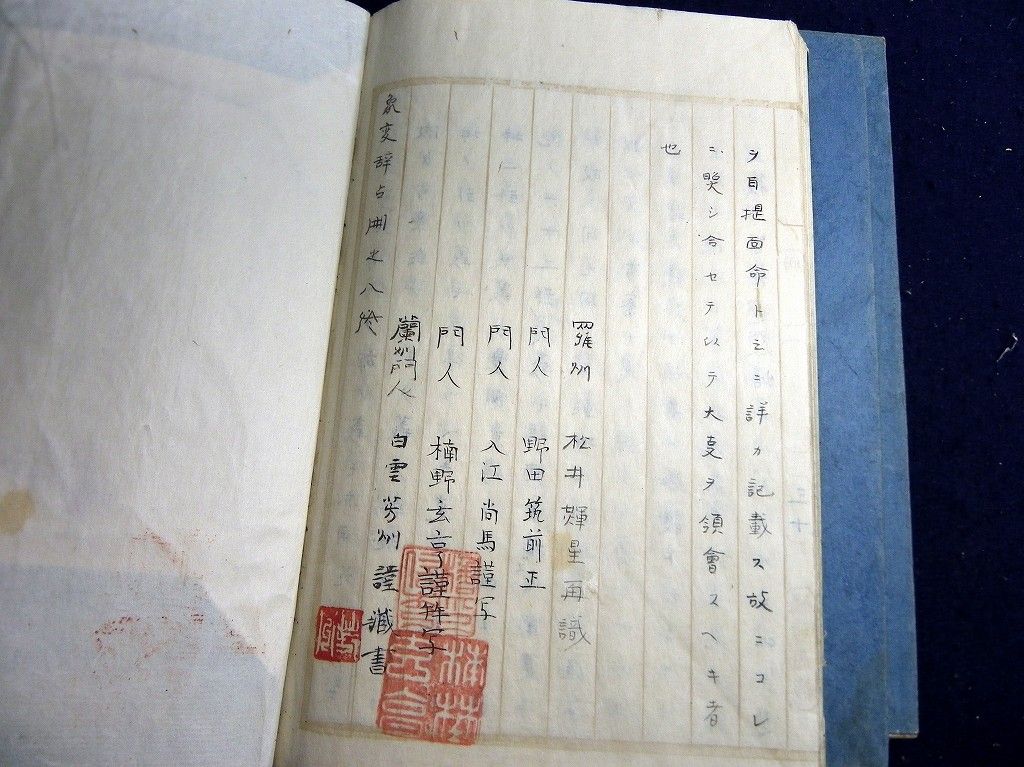 ヲ耳提面命トミニ詳カ記載ス故ニコレ
ニ照シ合セテ以テ大事ヲ領會スヘキ者
也
羅州 松井輝星再識
門人 野田筑前正
門人 入江尚馬謹写
門人 楠野玄亨謹拝写
蘭州門人 白雲芳州謹蔵書
象変辞占冊之八終